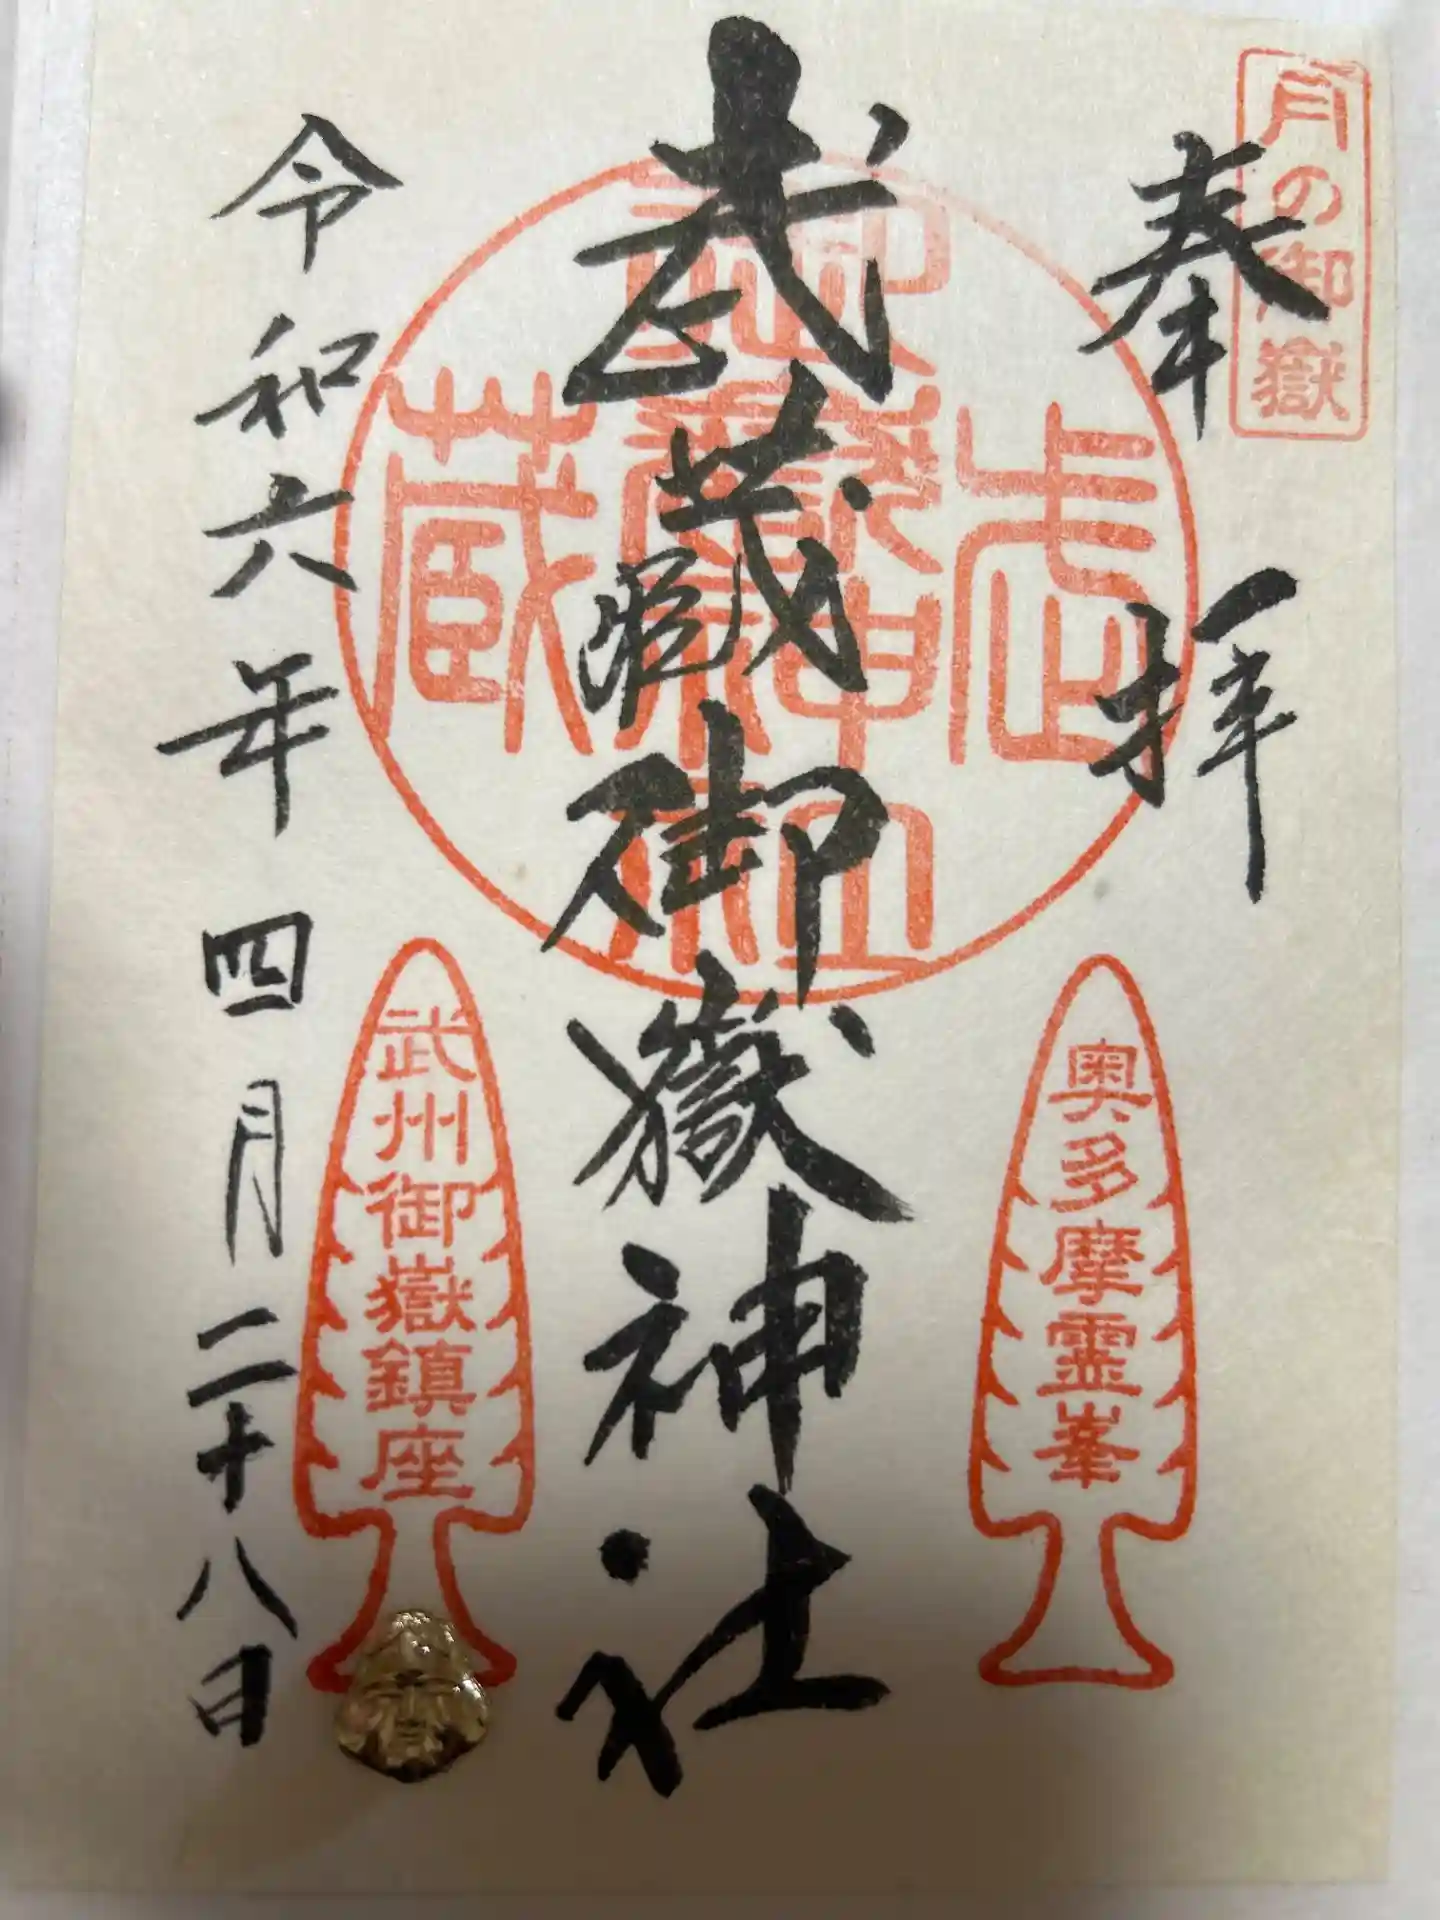 月の御嶽
奉拝
武蔵御嶽神社
武蔵
御嶽神社
奥多摩霊峯
武州御嶽鎮座
令和六年四月二十八日